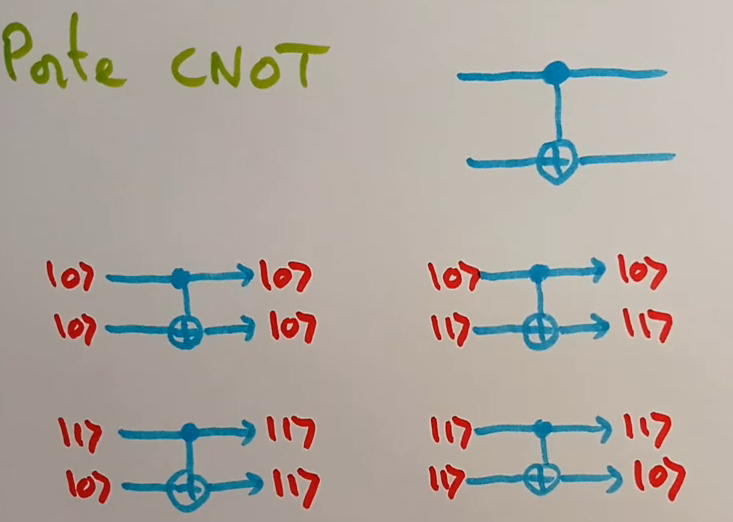 Porte CNOT
|0> |0> |0> |0>
|0> |0> |1> |1>
|1> |1> |1> |1>
|0> |1> |1> |0>